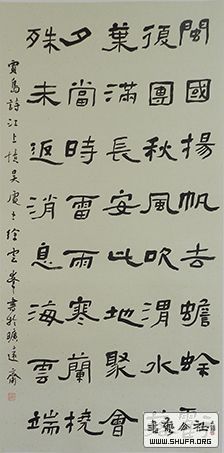 閩國揚帆去蟾蜍
復團秋風吹渭水
葉滿長安此地聚會
夕當時雷雨寒蘭橈
殊未返消息海雲端
賈島詩江上憶吳處士徐雲峯書於曠遠齋
書藝公社
WWW.SHUFA.ORG